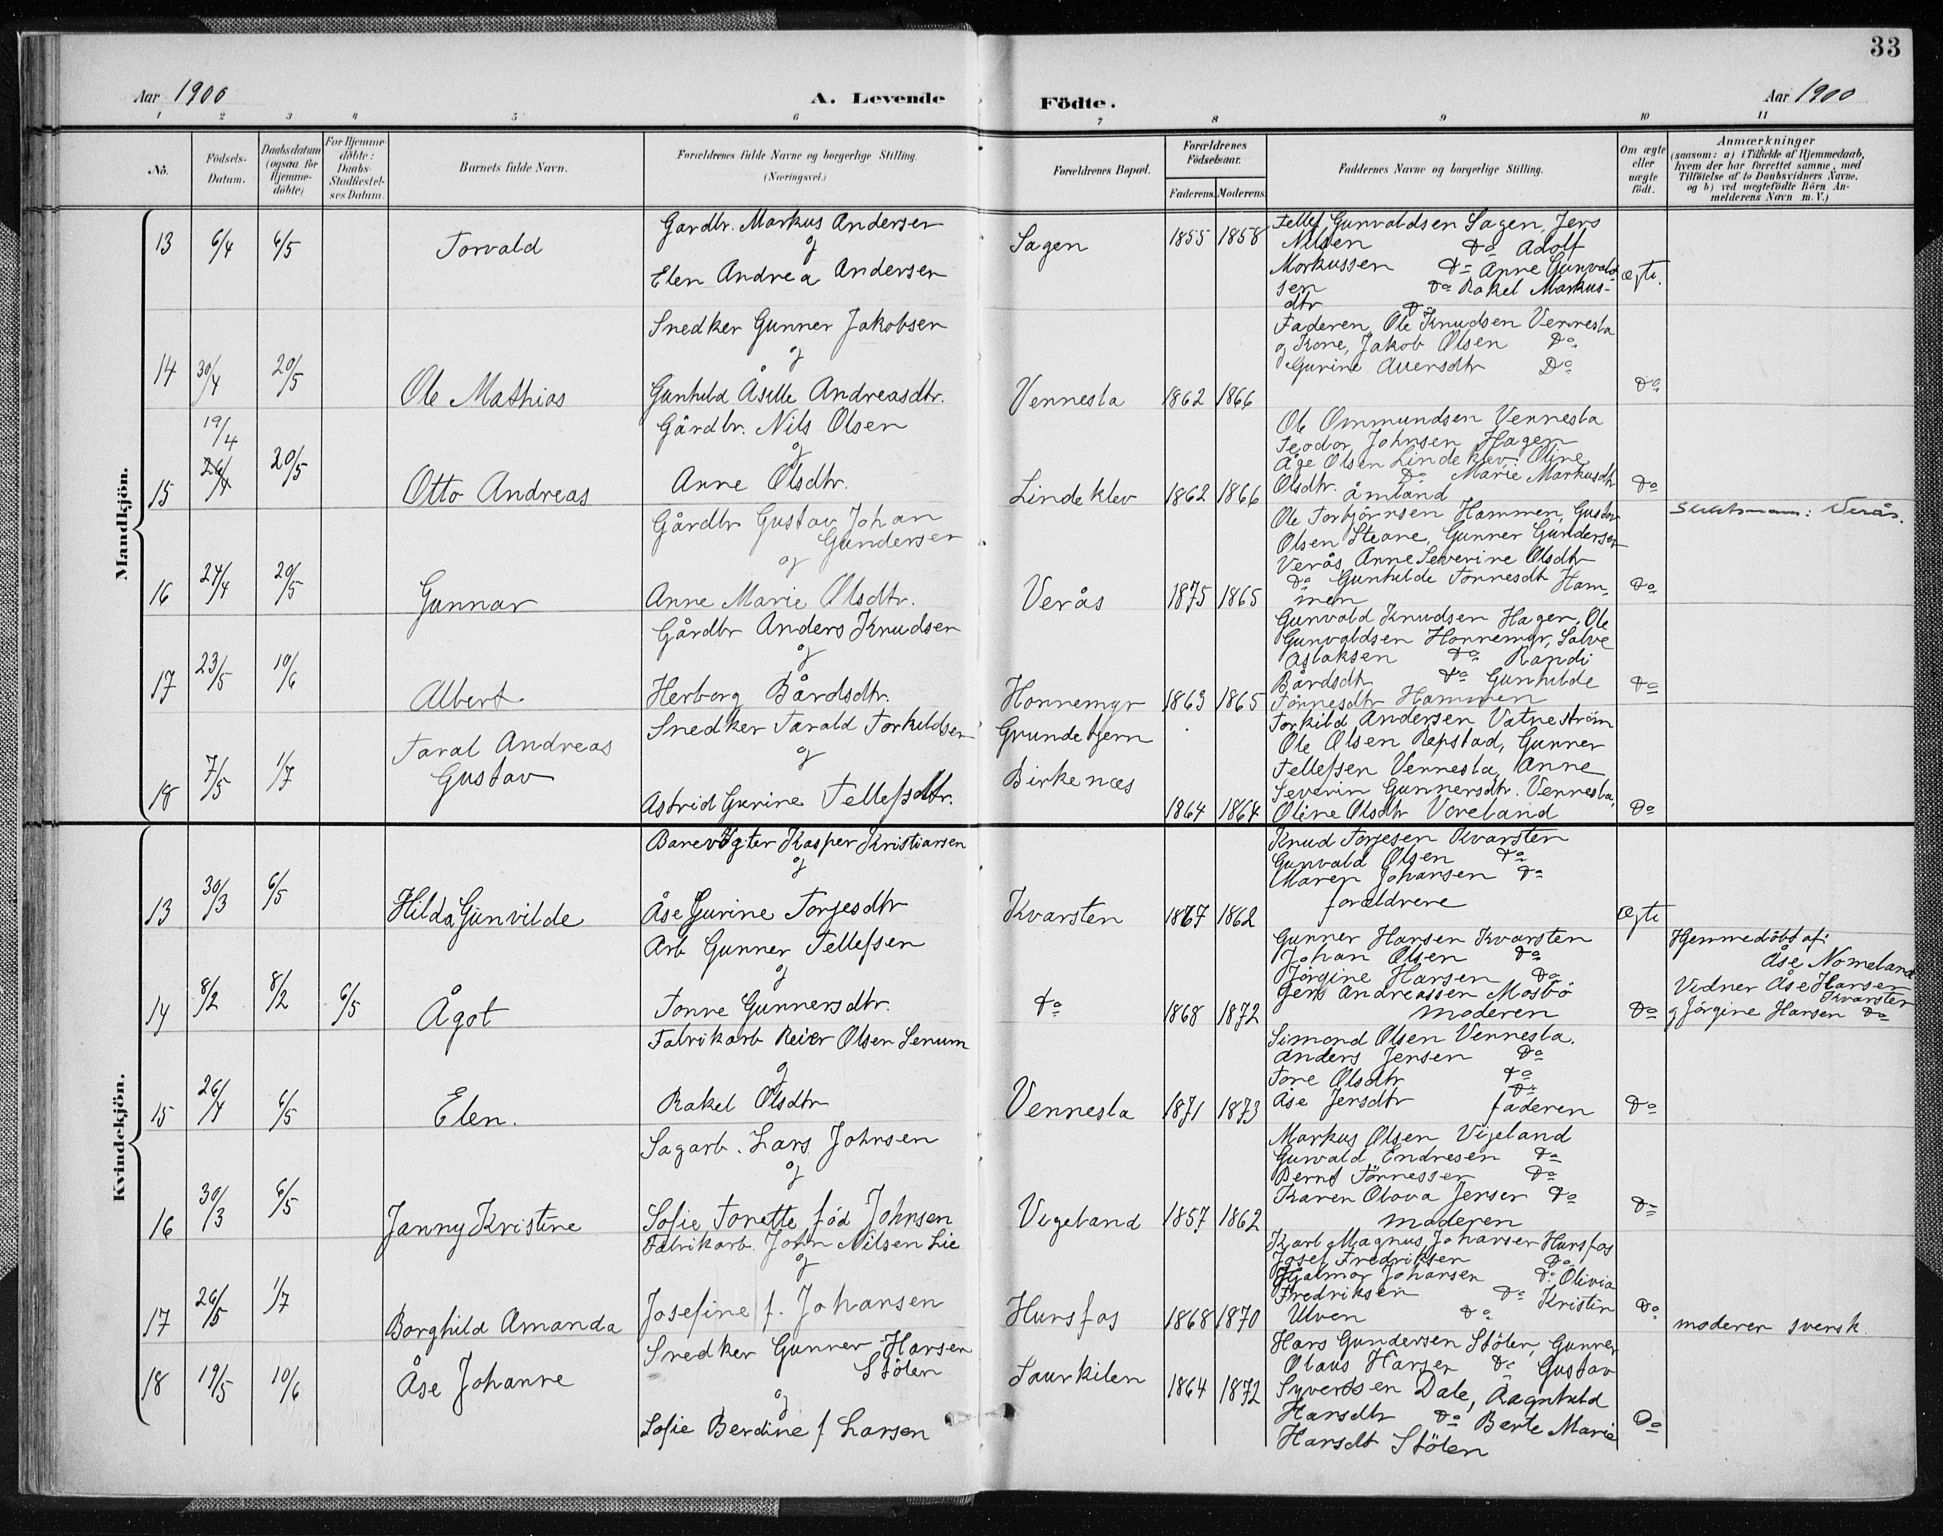 33
Aar 1900
A. Levende
Födte.
Aar 1900
1 2 3 4 5 6 7 8 9 10 11
No.
Födsels-
Datum.
Daabsdatum
(ogsaa for
Hjemme-
döbte)
For Hjemme-
döbte:
Daabs-
Stadfæstel-
ses Datum.
Barnets fulde Navn.
Forældrenes fulde Navne og borgerlige Stilling.
(Næringsvei.)
Forældrenes Bopæl.
Forældrenes
Födselsaar.
Faderens. Moderens.
Faddernes Navne og borgerlige Stilling.
Om ægte
eller
uægte
födt.
Anmærkninger
(saasom: a) i Tilfælde af Hjemmedaab,
hvem der har forrettet samme, med
Tilföielse af to Daabsvidners Navne,
og b) ved uægtefödte Börn An-
melderens Navn m. V.)
Mandkjön.
13 6/4 6/5 Torvald
Gardbr. Markus Andersen
og
Elen Andrea Andersen
Sagen 1855 1858
Tellef Gunvaldsen Sagen, Jens
Nilsen Do Adolf
Morkussen Do Anne Gunvald-
sen Do Rakel Markus-
dtr Do
Ægte.
14 30/4 20/5 Ole Mathias
Snedker Gunner Jakobsen
og
Gunhild Åsille Andreasdtr.
Vennesla 1862 1866
Faderen, Ole Knudsen Vennesla
og Kone, Jakob Olsen Do
Gurine Auersdtr Do
Do
15 19/4 26/4 20/5 Otto Andreas
Gårdbr. Nils Olsen
og
Anne Olsdtr.
Lindeklev 1862 1866
Ole Ommundsen Vennesla
Teodor Johnsen Hagen
Åge Olsen Lindeklev, Oline
Olsdtr. Do Marie Markusdtr
Åmland
Do
16 24/4 20/5 Gunnar
Gårdbr Gustav Johan
Gundersen
og
Anne Marie Olsdtr.
Verås 1875 1865
Ole Torbjörnsen Hammen, Gustav
Olsen Steane, Gunner Gundersen
Verås, Anne Severine Olsdtr
Do Gunhilde Tönnesdt Ham-
men
Do
Verås.
17 23/5 10/6 Albert
Gårdbr Anders Knudsen
og
Herborg Bårdsdtr.
Honnemyr 1863 1865
Gunvald Knudsen Hagen, Ole
Gunvaldsen Honnemyr, Salve
Aslaksen Do Randi
Bårdsdt Do Gunhilde
Tönnesdtr Hammen
Do
18 7/5 1/7 Taral Andreas
Gustav
Snedker Tarald Torkildsen
og
Astrid Gurine Tellefsdtr.
Grundetjern
Birkenæs
1864 1864
Torkild Andersen Vatneström
Ole Olsen Repstad, Gunner
Tellefsen Vennesla, Anne
Severin Gunnersdtr. Vennesla,
Oline Olsdtr Voreland
Do
Kvindekjön.
13 30/3 6/5 Hilda Gunvilde
Banevogter Kasper Kristiansen
og
Åse Gurine Torjesdtr
Kvarsten 1867 1862
Knud Torjesen Kvarsten
Gunvald Olsen Do
Maren Johansen Do
forældrene
Ægte
14 8/2 8/2 6/5 Ågot
Arb Gunner Tellefsen
og
Tonne Gunnersdtr.
Do 1868 1872
Gunner Hansen Kvarsten
Johan Olsen Do
Jörgine Hansen Do
Jens Andreassen Mosbö
moderen
Do
Hjemmedöbt af:
Åse Nomeland
Vidner Åse Hansen
Kvarsten
og Jörgine Hansen Do
15 26/4 6/5 Elen.
Fabrikarb Reier Olsen Senum
og
Rakel Olsdtr
Vennesla 1871 1873
Simond Olsen Vennesla.
Anders Jensen Do
Tore Olsdtr Do
Åse Jensdtr Do
faderen
Do
16 30/3 6/5 Janny Kristine
Sagarb. Lars Johnsen
og
Sofie Tonette föd Johnsen
Vigeland 1857 1862
Markus Olsen Vigeland
Gunvald Endresen Do
Bernt Tönnessen Do
Karen Olova Jensen Do
moderen
Do
17 26/5 1/7 Borghild Amanda
Fabrikarb. John Nilsen Lie
og
Josefine f. Johansen
Hunsfos 1868 1870
Karl Magnus Johansen Hunsfos
Josef Fredriksen Do
Hjalmar Johansen Do Olivia
Fredriksen Do Kristin
Ulven Do
Do
moderen svensk.
18 19/5 10/6 Åse Johanne
Snedker Gunner Hansen
Stölen
og
Sofie Berdine f Larsen
Saurkilen 1864 1872
Hans Gundersen Stölen, Gunner
Olaus Hansen Do Gustav
Syvertsen Dale, Ragnhild
Hansdtr Do Berte Marie
Hansdt Stölen
Do